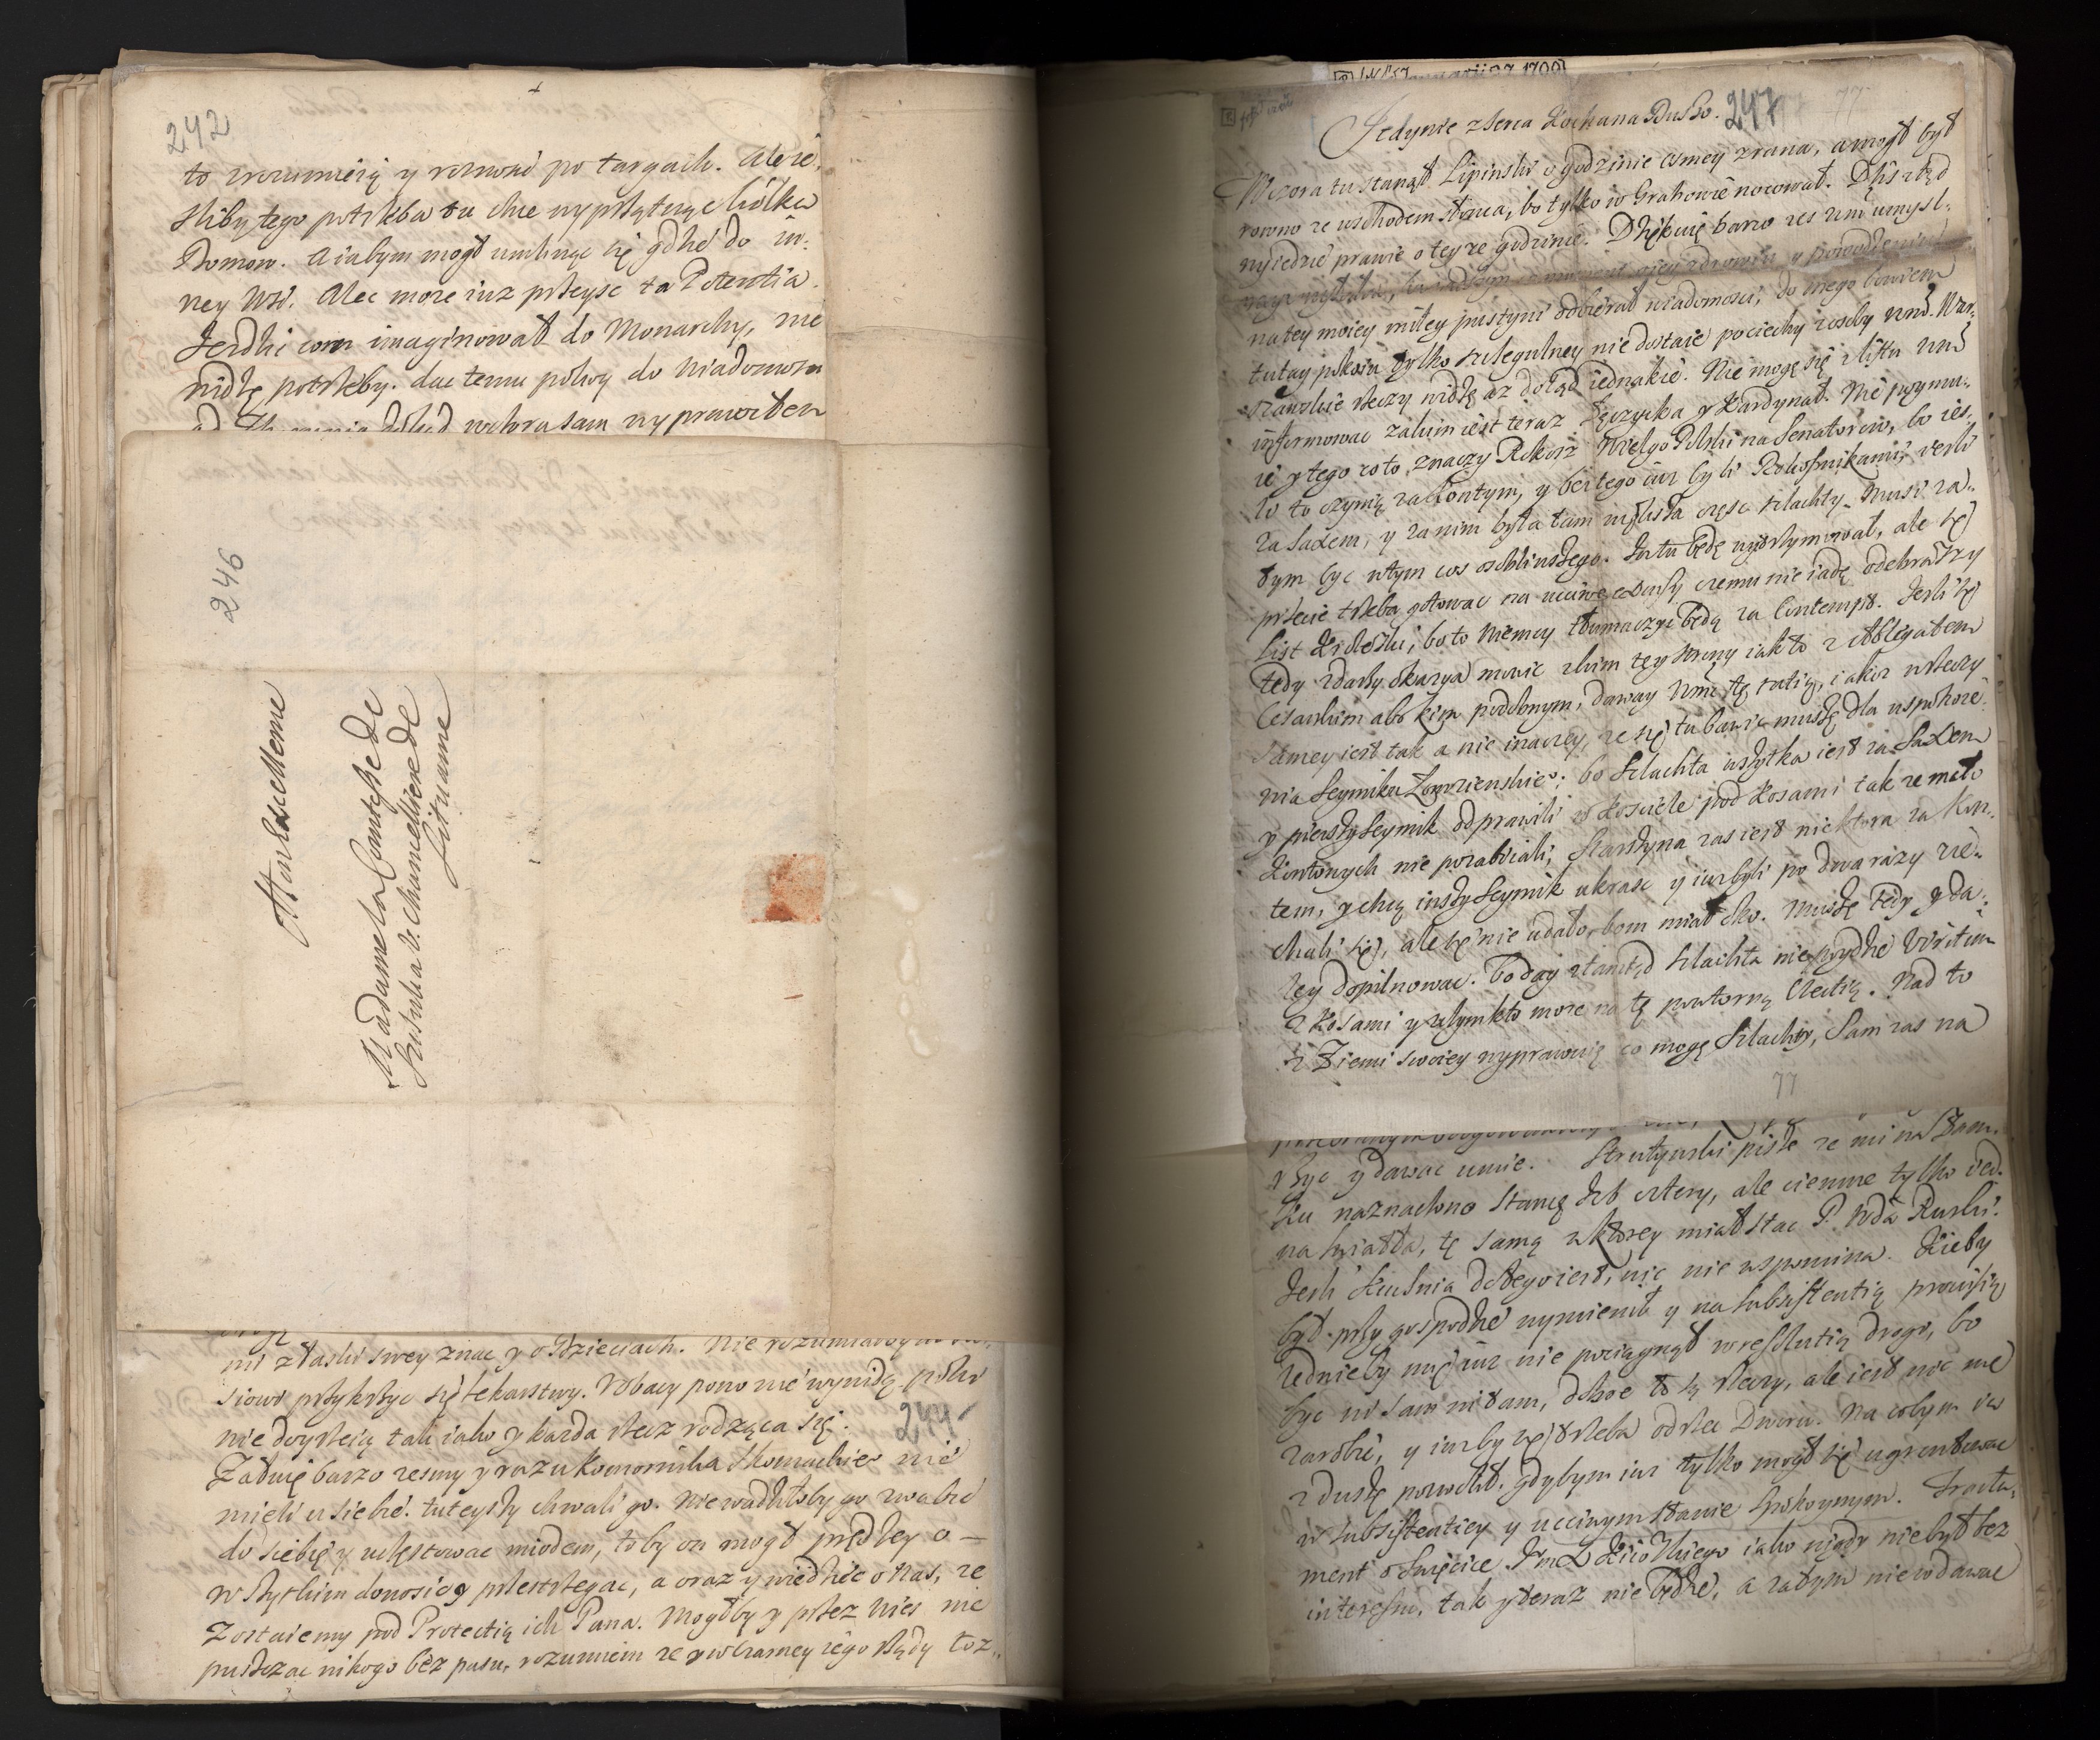 242
to zrozumieią y roznosić po targach. Ale ie,
sliby tego potrzeba tu chce wyprzątnąc kilka
Domow. a iabym mogł umknąc się gdzie do in:
ney Wsi. Alec może iuz przeysc ta Potentia.
Jezdzi com imaginował do Monarchy, nie
nidzę potrzeby. dac temu pokoy do wiadomosci
wczora sam wyprawiłem
246
A Son Excellence
Madame la Comtesse de
Szczuka V. Chancelliere de
Lituanie
mi z łaski swey znac y o Dzieciach. Nie rozumiałbym
siowi przykrzyc się lekarstwy. Robacy pono nie wynidą poki
nie doyrzeią tak iako y kazda rzecz rodząca się.
244
Załuię barzo zesmy y razu Komornika Tłomackie° nie
mieli u siebie. tuteyszy chwali go. Nie wadziłoby go zwabic
do siebie y uczęstowac miodem, toby on mogł prędzey o —
wszytkim donosic y przestrzegac, a oraz y wiedziec o Nas, ze
zostaiemy pod Protectią ich Pana. Mogłby y przez Wies nie
puszczac nikogo bez pasu, rozumiem ze y w Czarney iego rządy toz
247
77
Jedynie z serca Kochana Duszo.
Wczora tu stanął Lipinski o godzinie osmey zrana, a mogł był
rowno ze wschodem słonca, bo tylko w Grabowie nocował. Dzis ztąd
wyiedzie prawie o teyze godzinie. Dziękuię barzo zes Wm umysl:
na tey moiey miłey pustyni odbierał wiadomosci, do mego bowiem
tutay pokoiu tylko szczegulney nie dostaie pociechy z osoby Wm. War:
szawskie rzeczy widzę az dotąd iednakie. Nie mogę się z listu Wm
informowac załum iest teraz Łęczycka y Kardynał. Nie poymu:
ię y tego co to znaczy Rokosz Wielgo Polski na Senatorow, bo ies,
li to czynią za Contym, y bez tego iuz byli Rokosznikami, iesli
za Saxem, y za nim była tam większa częsc szlachty. Musi za:
tym byc w tym cos osobliwszego. Ja tu będę wyrozumiwał, ale się
przecie trzeba gotowac na uciwe excusy czemu nie iadę odebrawszy
List Krolewski, bo to Niemcy tłumaczyc będą za Contempt. Jesli się
tedy zdarzy okazya mowic z kim tey strony iak to z Ablegatem
Cesarskim abo kim podobnym, daway Wm tę ratią, iakoz w rzeczy
samey iest tak a nie inaczey, ze się tu bawic muszę dla uspokoie:
nia Seymiku Łomzienskie°; bo Szlachta wszytka iest za Saxem
y pierwszy Seymik odprawili w kosciele pod kosami tak ze mało
Kontowych nie pozabiiali; Starszyna zas iest niektora za Kon:
tem, y chcą inszy Seymik ukrasc y iuz byli po dwa razy zie:
chali się, ale się nie udało, bom miał oko. Muszę tedy y da:
ley dopilnowac. Boday ztamtąd szlachta nie poydzie Viritim
z kosami y z czym kto moze na tę powtorną Electią. Nad to
z Ziemi swoiey wyprawuię co mogę Szlachty, Sam zas na
77
rzyc y dawac umie. Strutynski pisze ze mi na Zam:
ku naznaczono Stancę izb cztery, ale ciemne tylko ied:
na widzia, tę samą w ktorey miał stac P. Wda Ruski.
Jesli Kuchnia do tego iest, nic nie wspomina. Kieby
był przy gospodzie wymienił y na Subsistentią prowizią
ledwieby mię iuz nie pociągnął w resolutią drogi, bo
byc ni sam ni tam, dobre to są rzeczy, ale iest nic nie
zarobic, y iuzby się trzeba odrzec Dworu. na cobym iuz
z duszę pozwolił, gdybym iuz tylko mogł się ugruntowac
w subsistentiey y uczciwym stanie spokoynym. Tracta:
ment o Swięcice Jm X Kiiowskiego iako nigdy nie był bez
interesu, tak y teraz nie będzie, a zatym nie wdawac